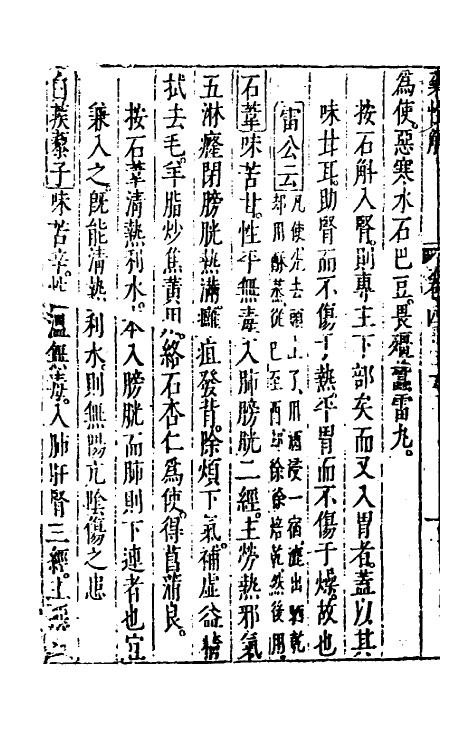 為使惡寒水石巴豆畏殭蠶雷丸
按石斛入腎則專主下部矣而又入胃者蓋以其
味甘耳助腎而不傷于熱平胃而不傷于燥故也
雷公云凡使先去頭上了用酒浸一宿漉出曬乾
却用酥蒸從巳至酉却徐徐焙乾然後用
石葦味苦甘性平無毒入肺膀胱二經主勞熱邪氣
五淋癃閉膀胱熱滿癰疽發背除煩下氣補虛益精
拭去毛羊脂炒焦黃用絡石杏仁為使得菖蒲良
按石葦清熱利水本入膀胱而肺則下連者也宜
兼入之既能清熱利水則無陽亢陰傷之患
白蒺藜子味苦辛性溫無毒入肺肝腎三經主惡